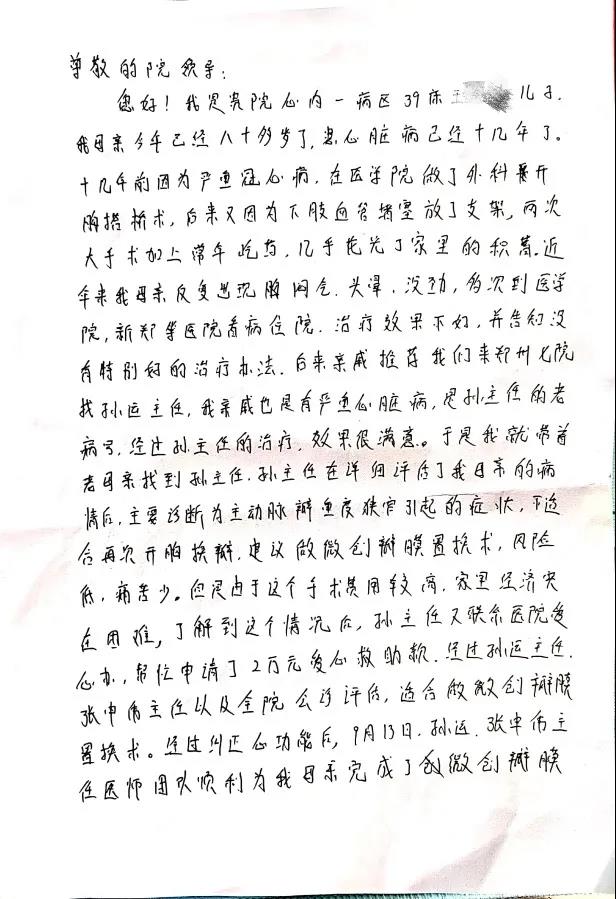 尊敬的院领导:
您好!我是贵院心内一病区39床王 儿子,
我母亲今年已经八十多岁了,患心脏病已经十几年了。
十几年前因为严重冠心病,在医学院做了外科开
胸搭桥术,后来又因为下肢血管堵塞放了支架,两次
大手术加上常年吃药,几乎花光了家里的积蓄.近
年来我母亲反复出现胸闷气、头晕、没劲,多次到医学
院,新郑等医院看病住院.治疗效果不好,并告知没
有特别好的治疗办法.后来亲戚推荐我们来郑州七院
找孙运主任,我亲戚也是有严重心脏病,是孙主任的老
病号,经过孙主任的治疗,效果很满意。于是我就带着
老母亲找到孙主任.孙主任在详细评估了我母亲的病
情后,主要诊断为主动脉瓣重度狭窄引起的症状,不适
合再次开胸换瓣,建议做微创瓣膜置换术,风险
低,痛苦少。但是由于这个手术费用较高,家里经济实
在困难,了解到这个情况后,孙主任又联系医院爱
心办,帮忙申请了2万元爱心救助款.经过孙运主任、
张申伟主任以及全院会诊评估,适合做微创瓣膜
置换术。经过纠正心功能后,9月13日.孙运、张申伟主
任医师团队顺利为我母亲完成了微创瓣膜